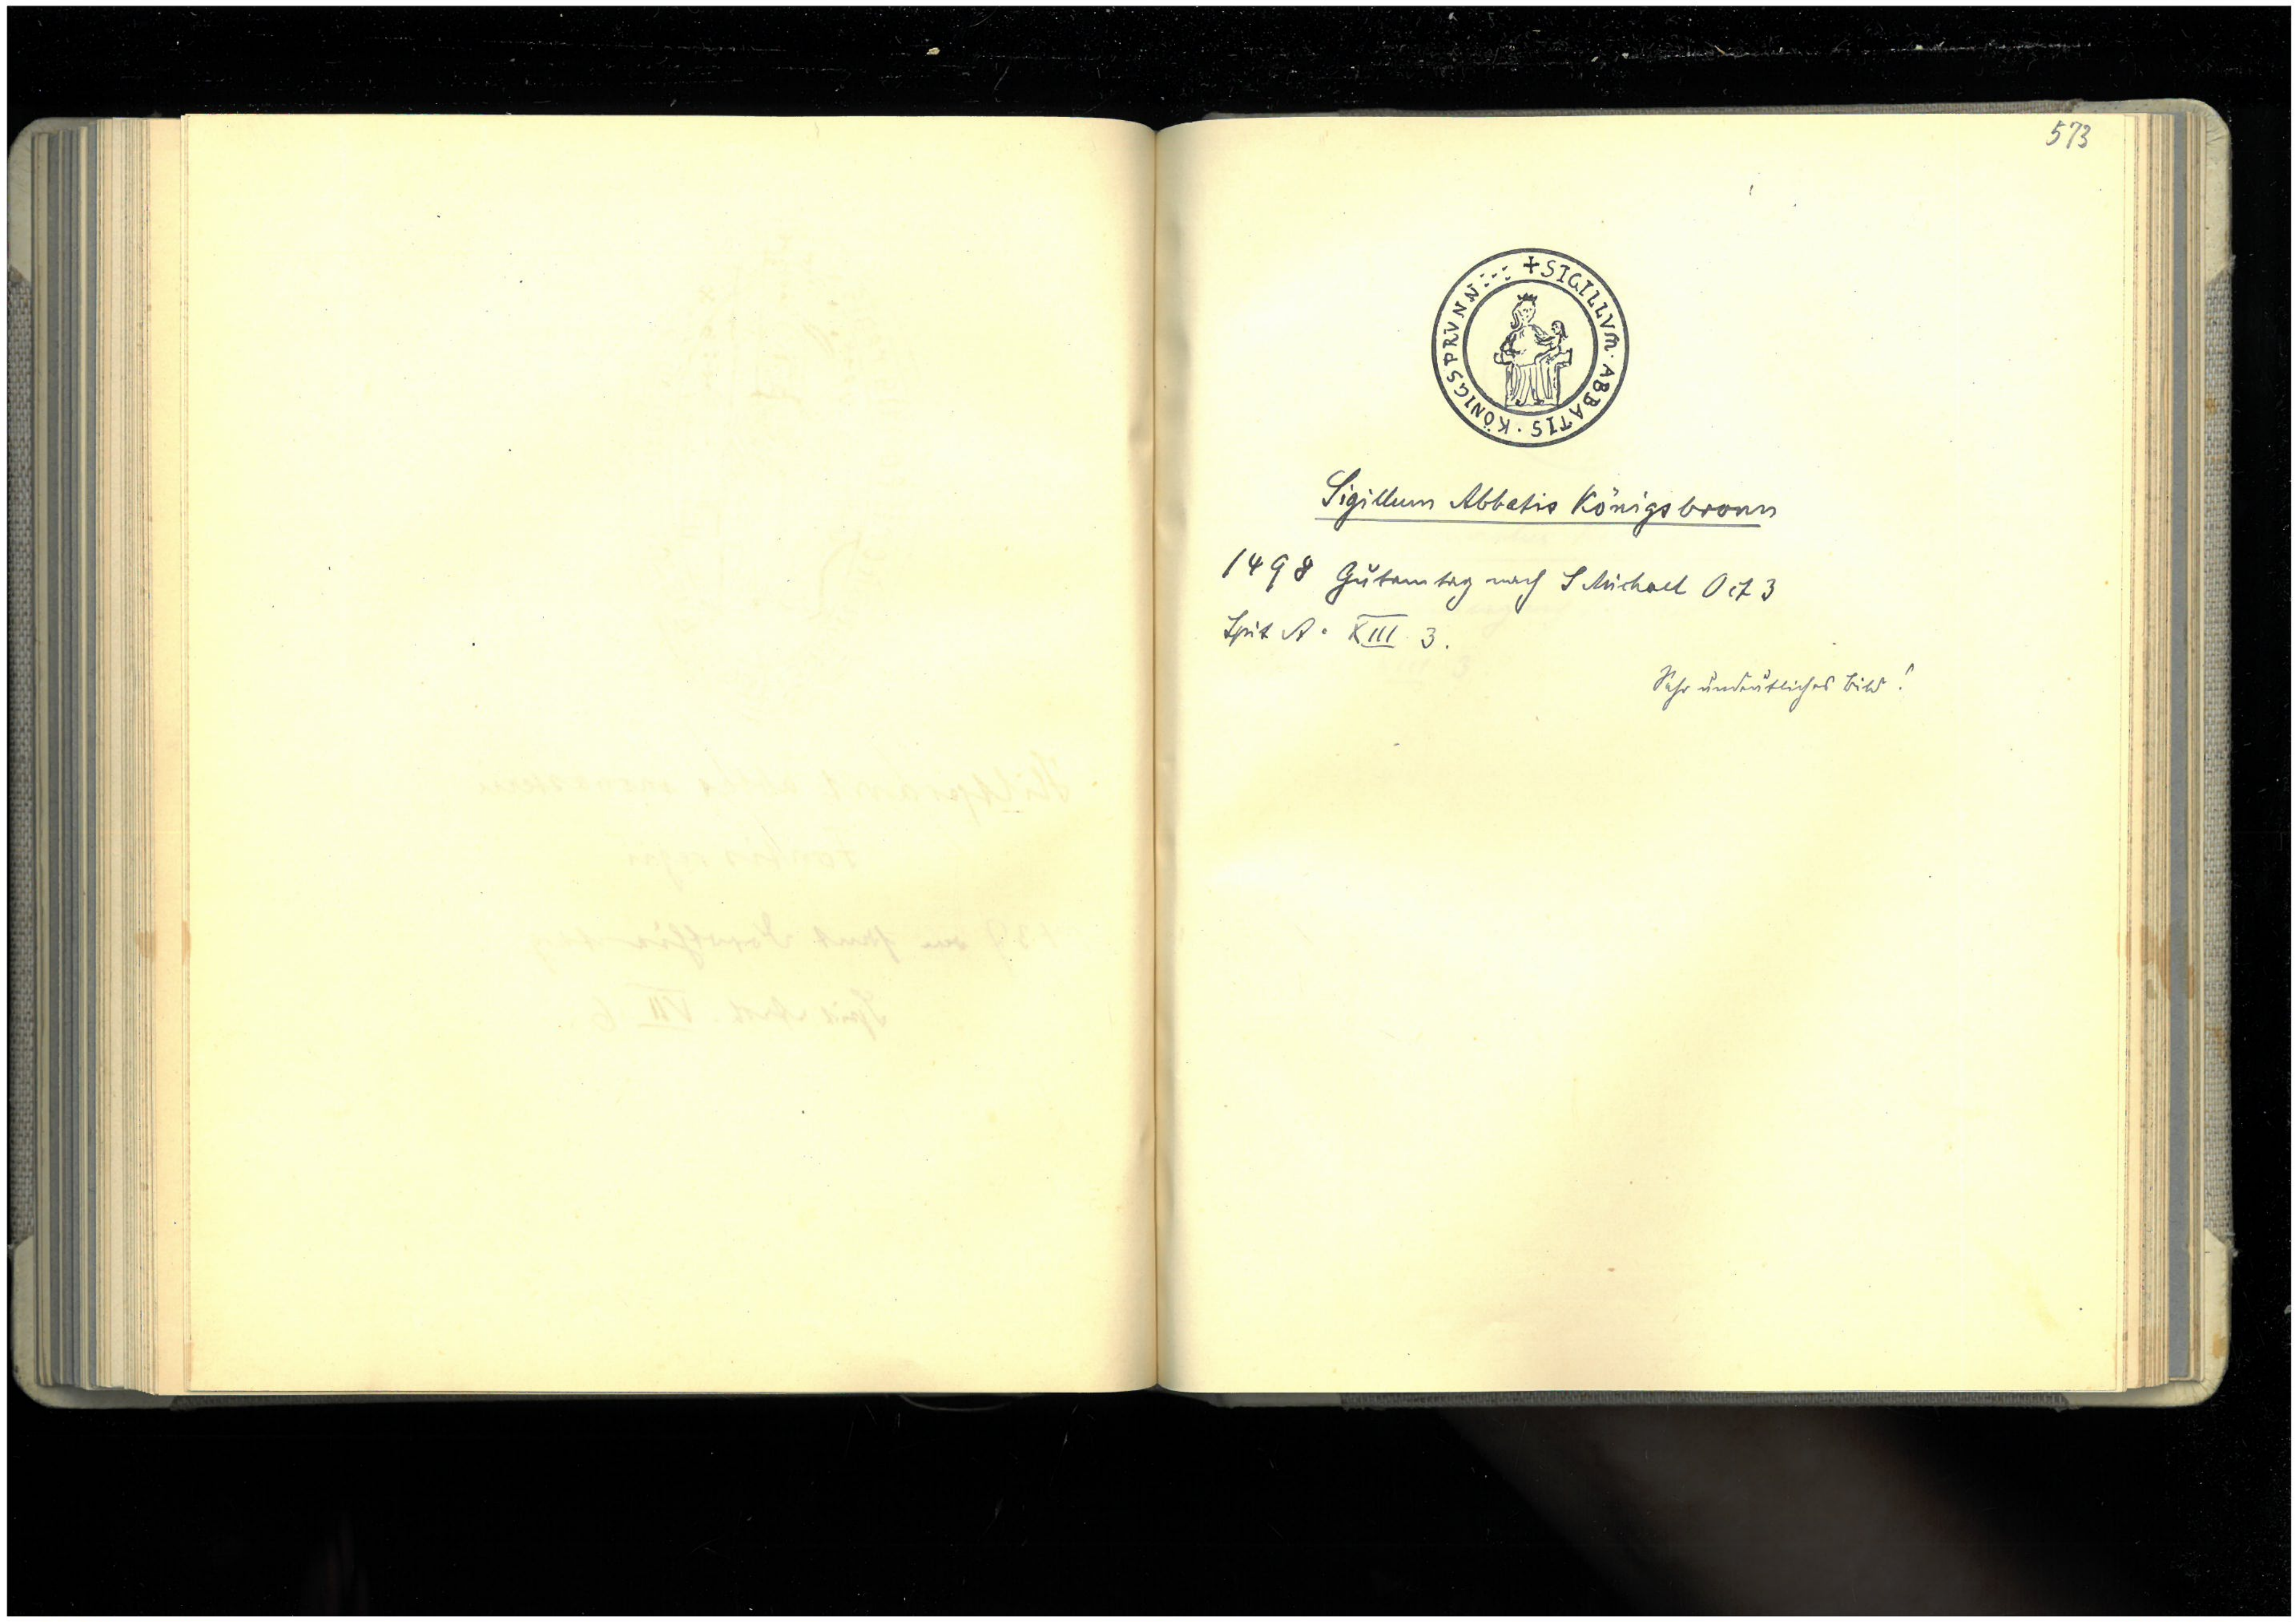 573
+ SIGILLVM · ABBATIS · KÖNIGSPRVNN
Sigillum Abbatis Königsbronn
1498 Gutemtag nach S Michael Oct 3
Spit A. XIII 3.
Sehr undeutliches Bild!